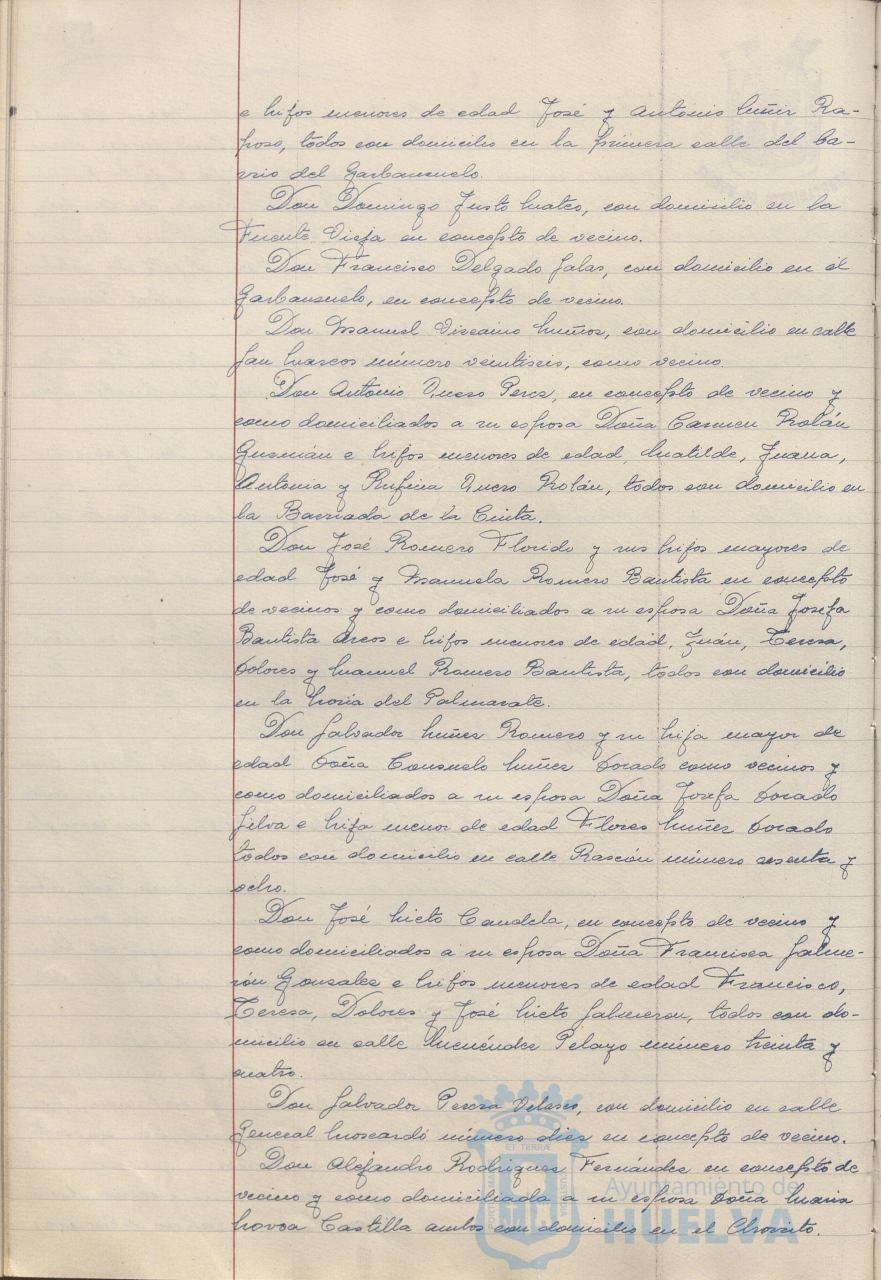 e hijos menores de edad José y Antonio Muñiz Ra-
poso, todos con domicilio en la primera calle del ba-
rrio del Garbanzuelo.
Don Domingo Justo Mateo, con domicilio en la
Fuente Vieja en concepto de vecino.
Don Francisco Delgado Salas, con domicilio en el
Garbanzuelo, en concepto de vecino.
Don Manuel Viscaino Muños, con domicilio en calle
San Marcos número veintiseis, como vecino.
Don Antonio Quero Perez, en concepto de vecino y
como domiciliados a su esposa Doña Carmen Roldán
Guzmán e hijos menores de edad, Matilde, Juana,
Antonia y Rufina Quero Roldán, todos con domicilio en
la Barriada de la Cinta.
Don José Romero Florido y sus hijos mayores de
edad José y Manuela Romero Bautista en concepto
de vecinos y como domiciliados a su esposa Doña Josefa
Bautista Arcos e hijos menores de edad, Juán, Teresa,
Dolores y Manuel Romero Bautista, todos con domicilio
en la Noria del
Don Salvador Nuñez Romero y su hija mayor de
edad Doña Consuelo Nuñez Dorado como vecinos y
como domiciliados a su esposa Doña Josefa Dorado
Silva e hija menor de edad Flores Nuñez Dorado
todos con domicilio en calle Rascón número sesenta y
ocho.
Don José Nieto Candela, en concepto de vecino y
como domiciliados a su esposa Doña Francisca Salme-
rón Gonzalez e hijos menores de edad Francisco,
Teresa, Dolores y José Nieto Salmeron, todos con do-
micilio en calle Menéndez Pelayo número treinta y
cuatro.
Don Salvador Pereza Velasco, con domicilio en calle
General Moscardó número diez en concepto de vecino.
Don Alejandro Rodriguez Fernández en concepto de
vecino y como domiciliada a su esposa Doña Maria
Novoa Castilla ambos con domicilio en el Chorrito.
Ayuntamiento de
HUELVA